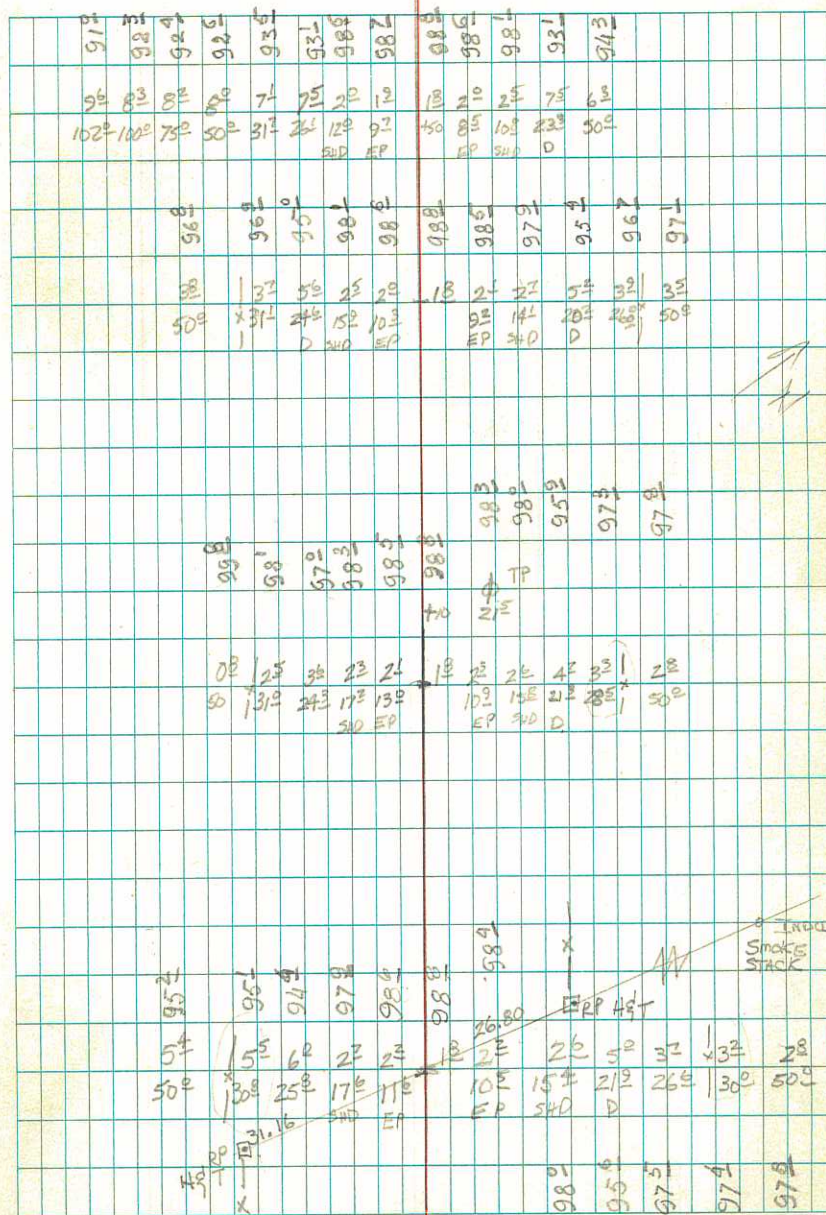 91⁹ 98³ 92⁴ 92⁶ 93⁵ 93¹ 98⁶ 98⁷ 98⁸ 98⁶ 98¹ 93¹ 94³
9⁶ 8³ 8² 8⁰ 7¹ 7⁵ 2⁰ 1⁹ 1⁸ 2⁰ 2⁵ 7⁵ 6³
102⁰ 100⁰ 75⁰ 50⁰ 31² 26¹ 12⁰ 9² +50 8⁵ 10⁸ 23⁸ 50⁰
SHD EP EP SHD D
96⁸ 96⁹ 95⁰ 98¹ 98⁶ 98⁸ 98⁵ 97⁹ 95⁴ 96⁷ 97¹
3⁸ 3⁷ 5⁶ 2⁵ 2⁰ 1⁸ 2¹ 2⁷ 5² 3⁹ 3⁵
50⁰ x 31¹ 24⁶ 15⁰ 10³ 9² 14¹ 20² 26⁰ x 50⁰
D SHD EP EP SHD D
98³ 98⁰ 95⁹ 97³ 97⁸
99⁸ 98¹ 97⁰ 98³ 98⁵ 98⁸
TP
+10 21⁵
0⁸ 2⁵ 3⁶ 2³ 2¹ 1⁸ 2³ 2⁶ 4⁷ 3³ 2⁸
50 x 31⁰ 24³ 17² 13⁰ 10⁹ 15⁸ 21² 28⁵ x 50⁰
SHD EP EP SHD D
SMOKE
STACK
x
95² 95¹ 94⁴ 97⁹ 98⁴ 98⁸ 98⁴
RP H&T
26.80
5⁴ 5⁵ 6² 2⁷ 2² 1⁸ 2² 2⁶ 5⁰ 3² x 3² 2⁸
50⁰ x 30⁸ 25⁸ 17⁶ 11⁶ 10⁵ 15⁴ 21⁹ 26⁶ 30⁰ 50⁰
SHD EP EP SHD D
31.16
RP
T
x
98⁰ 95⁶ 97⁵ 97⁴ 97⁸